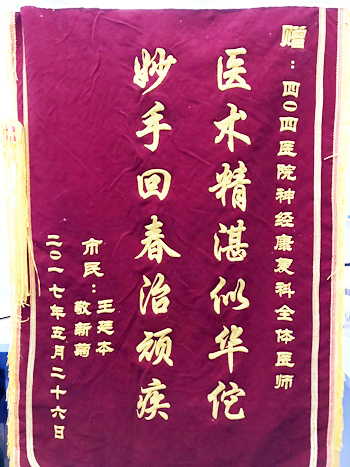 赠：四〇四医院神经康复科全体医师
医术精湛似华佗
妙手回春治顽疾
市民：王廷本
敬新菊
二〇一七年五月二十六日